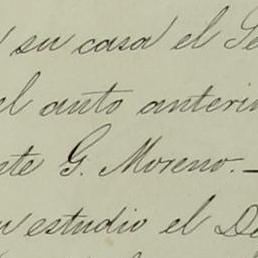 su casa el Se
el auto anterio
te G. Moreno.—
su estudio el De